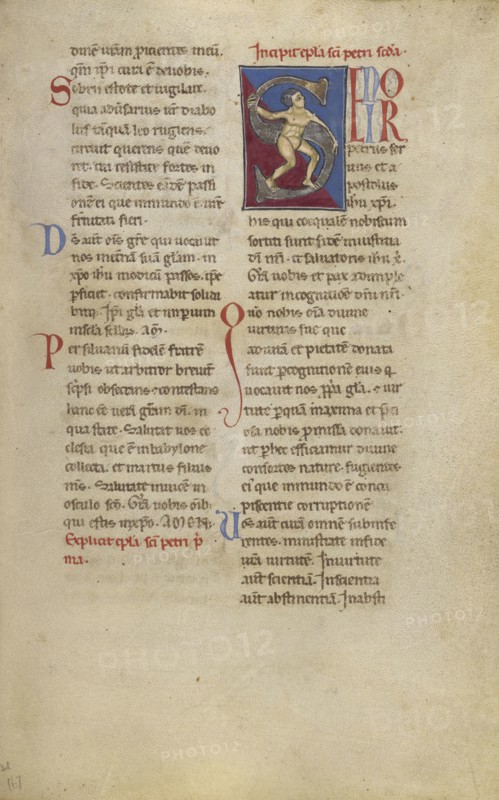 dinē ur̄am ꝓicientes in eū.
qm̄ ip̄i cura ē de uobis.
Sobrii estote et uigilate.
quia aduersarius ur̄ diabo
lus tāquā leo rugiens.
circuit querens quē deuo
ret. cui resistite fortes in
fide. Scientes eādē passi
onē ei que in mundo ē ur̄e
fr̄nitati fieri.
Ds̄ aut̄ oīs gr̄e qui uocauit
nos in et̄nā suā glām. in
xp̄o ih̄u modicū passos. ip̄e
ꝑficiet. confirmabit solida
bitq;. Ip̄i glā et imperium
in scl̄a scl̄oꝝ. Am̄.
Per siluanū fidelē fratrē
uobis ut arbitror breuit̄
scripsi obsecrans & contestans
hanc eē uerā grām dī. in
qua state. Salutat uos ec
clesia que ē in babylone
collecta. et marcus filius
ms̄. Salutate inuicē in
osculo scō. Grā uobis oīb
qui estis in xp̄o. AMEN.
Explicit ep̄la scī petri p̄
ma.
Incipit ep̄la scī petri scd̄a.
SIMO
IR
petrus ser
uus et a
postolus
ih̄u xp̄i.
his qui coequalē nobiscum
sortiti sunt fidē in iustitia
dī nr̄i. et saluatoris ih̄u x̄.
Grā uobis et pax adimple
atur in cognitiōe dn̄i nr̄i.
Quō nobis oīa diuine
uirtutis sue que
ad uitā et pietatē donata
sunt ꝑ cognitionē eius q̄
uocauit nos ꝓpria glā. & uir
tute ꝑ quā maxima et p̄ci
osa nobis ꝓmissa donauit.
ut ꝑ hec efficiamini diuine
consortes nature. fugientes
ei que in mundo ē concu
piscentie corruptionē
Uos aut̄ curā omnē subinfe
rentes. ministrate in fide
ur̄a uirtutē. In uirtute
aut̄ scientiā. In scientia
aut̄ abstinentiā. In absti
PHOTO12